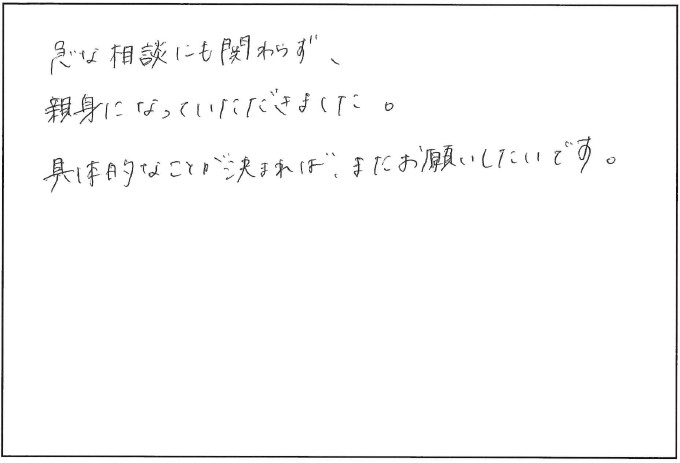 急な相談にも関わらず、
親身になっていただきました。
具体的なことが決まれば、またお願いしたいです。